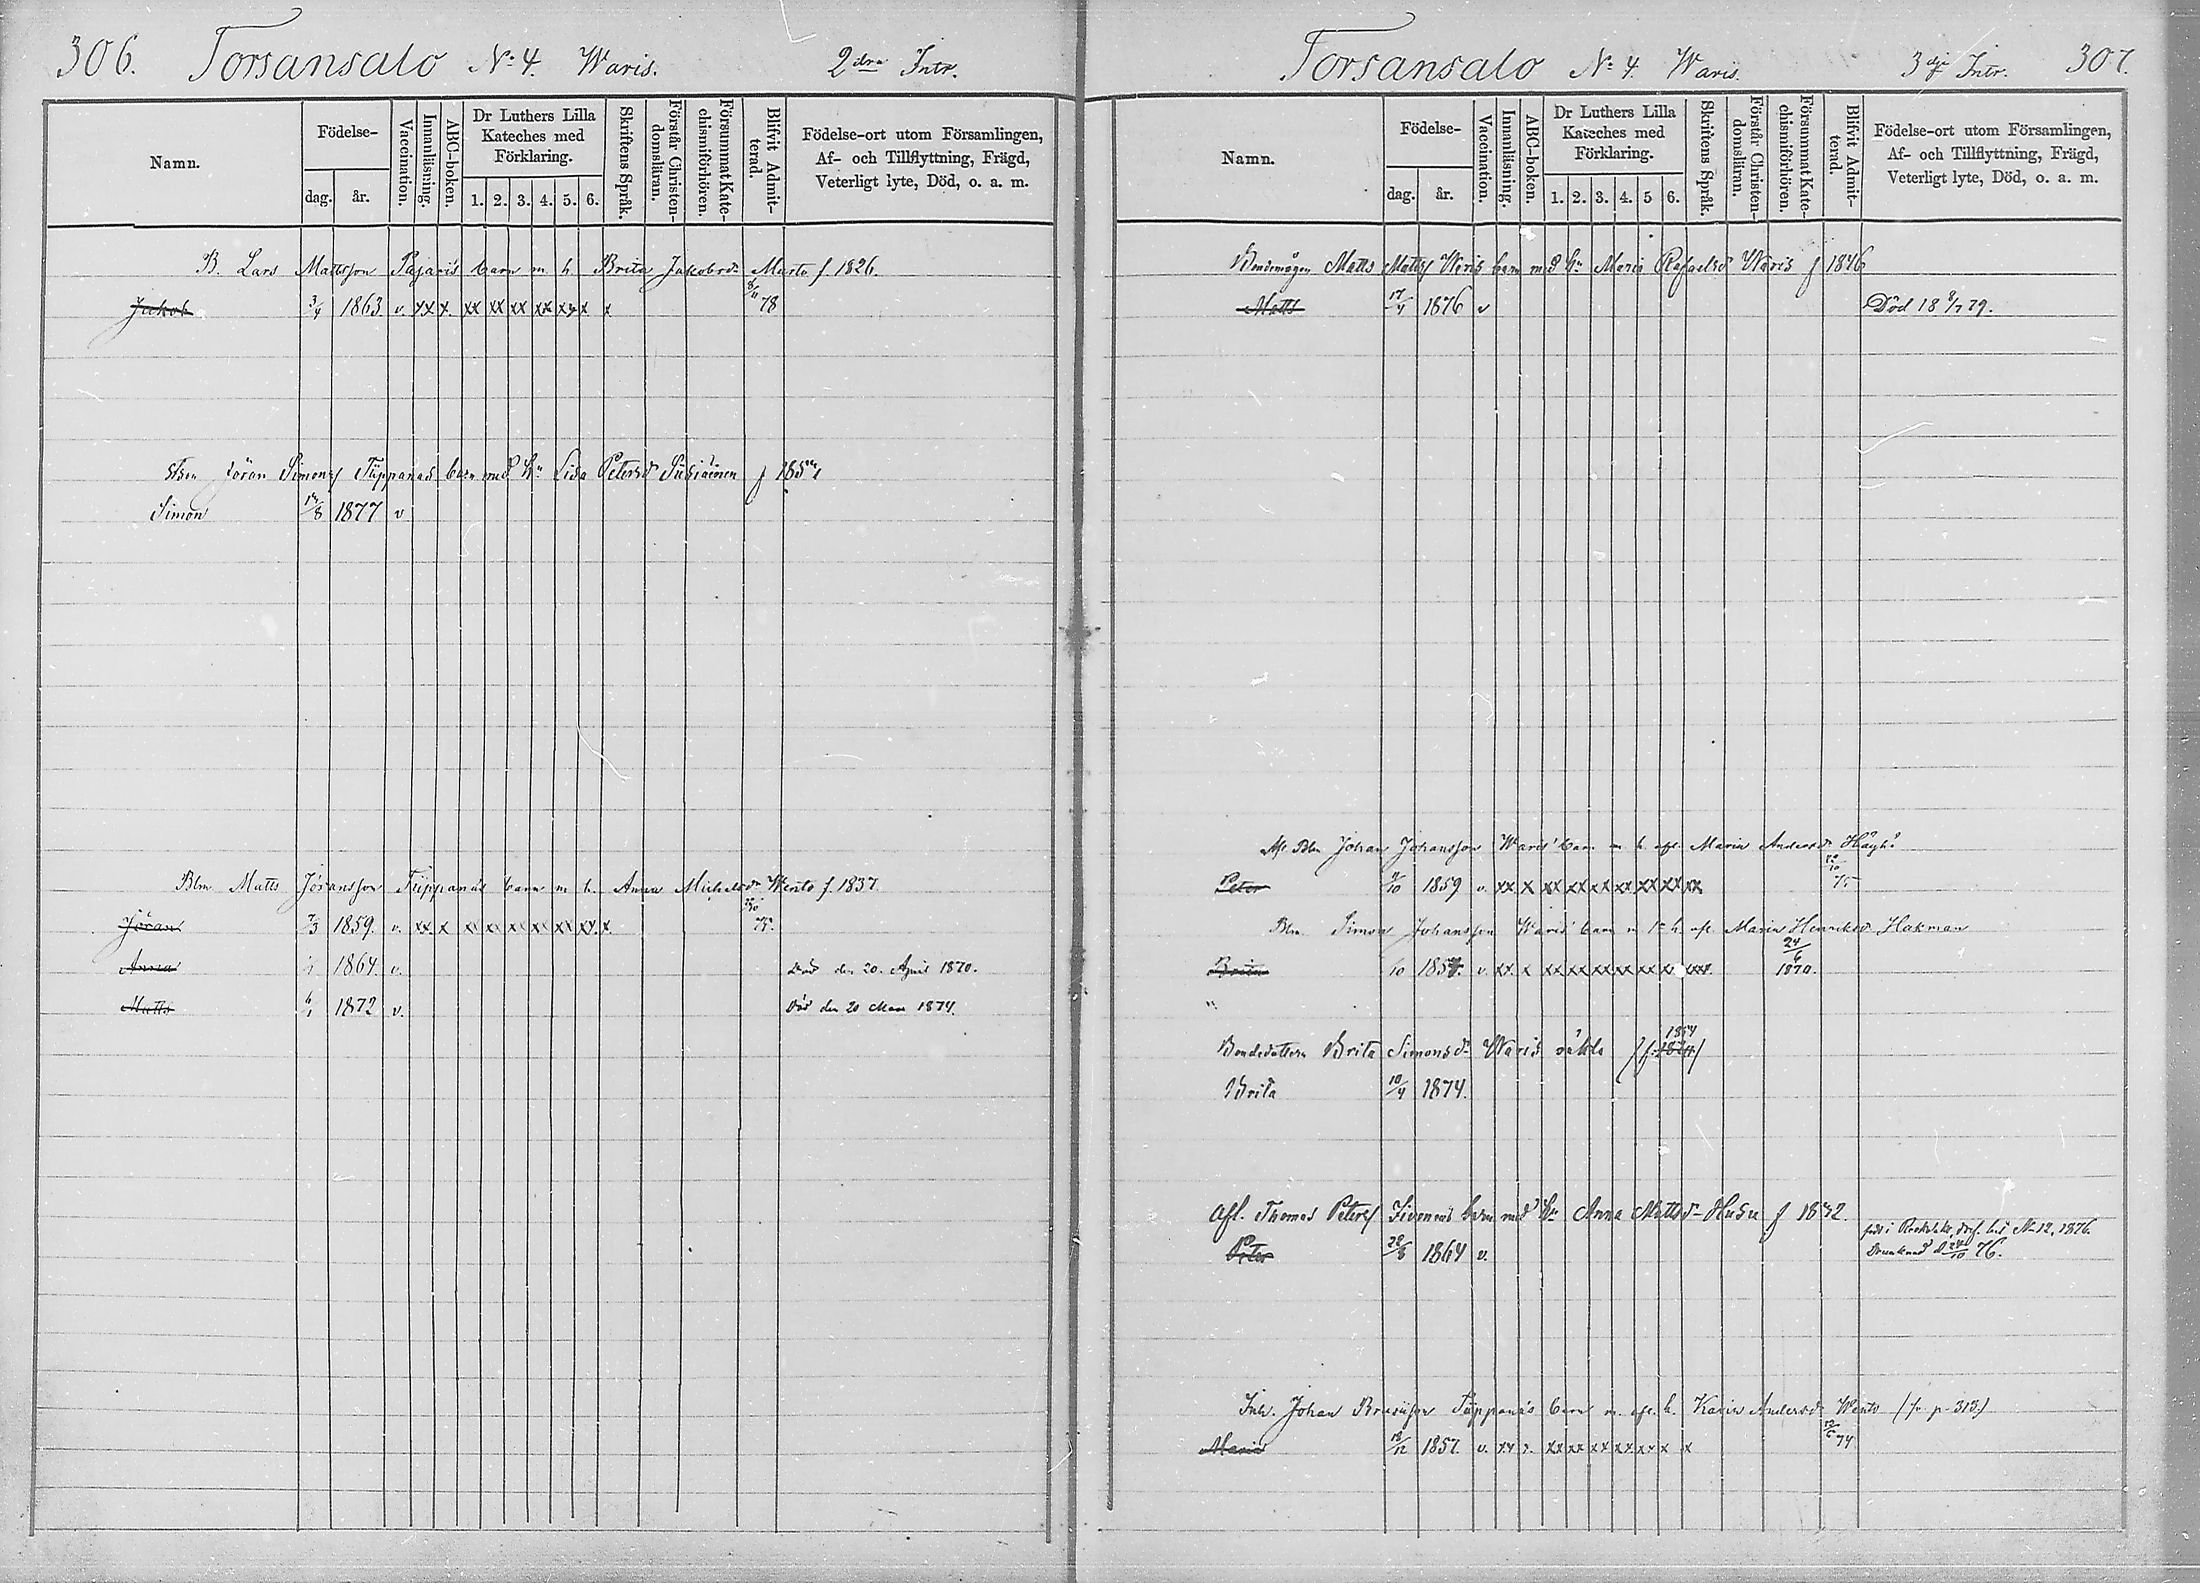 306. Torsansalo No 4. Waris. 2dra Intr.
Namn.
Födelse-
dag. år.
Vaccination.
Innanläsning.
ABC-boken.
Dr Luthers Lilla Kateches med Förklaring.
1. 2. 3. 4. 5. 6.
Skriftens Språk.
Förstår Christendomsläran.
Försummat Katechismiförhören.
Blifvit Admitterad.
Födelse-ort utom Församlingen, Af- och Tillflyttning, Frägd, Veterligt lyte, Död, o. a. m.
B. Lars Mattsson Pajaris barn m h Brita Jakobsdr Musto f. 1826.
Jakob 3/4 1863 v. xx x. xx xx xx xx xx x x 78
Jöran Simons Tiippanas barn med hu Lisa Petersd Susiainen f
Simon 1877 v
Blm Matts Jöransson Tiippana's barn m h. Anna Michelsdr Wento f. 1837
Jöran 7/3 1859. v. xx. x xx xx xx xx xx xx. x.
Anna 1864. v. Död den 20. April 1870.
Matts 1872 v. Död den 20 Mars 1874.
Torsansalo No 4. Waris. 3dje Intr. 307.
Namn.
Födelse-
dag. år.
Vaccination.
Innanläsning.
ABC-boken.
Dr Luthers Lilla Kateches med Förklaring.
1. 2. 3. 4. 5 6.
Skriftens Språk.
Förstår Christendomsläran.
Försummat Katechismiförhören.
Blifvit Admitterad.
Födelse-ort utom Församlingen, Af- och Tillflyttning, Frägd, Veterligt lyte, Död, o. a. m.
Bondemågen Matts Matts Waris barn med hu Maria Rafaelsd Waris f 1846
Matts 17/4 1876 v Död 18 9/7 79.
Blm Johan Johansson Waris' barn m h afl. Maria Andersdr Häyhä
Peter 9/10 1859 v. xx x xx xx xx xx xx xx xx
Blm. Simon Johansson Waris' barn m 1a h. afl. Maria Henriksdr Hakman
Brita 10 v. xx. x xx xx xx xx xx x 24/6 1870.
"
Bondedottern Brita Simonsdr Waris oäkta (f. 1854)
Brita 10/4 1874.
Afl. Thomas Peters Sivonens barn med hu Anna Mattsdr Husu f 1842.
Peter 28/8 1864 v. No 12, 1876. Drunknad d 24/10 76.
Inh. Johan Johan Tiippana's barn m. afl. h. Karin Andersdr Wento (fr p. 313.)
Maria 18/12 1857. v. xx x. xx xx xx xx xx x x 74